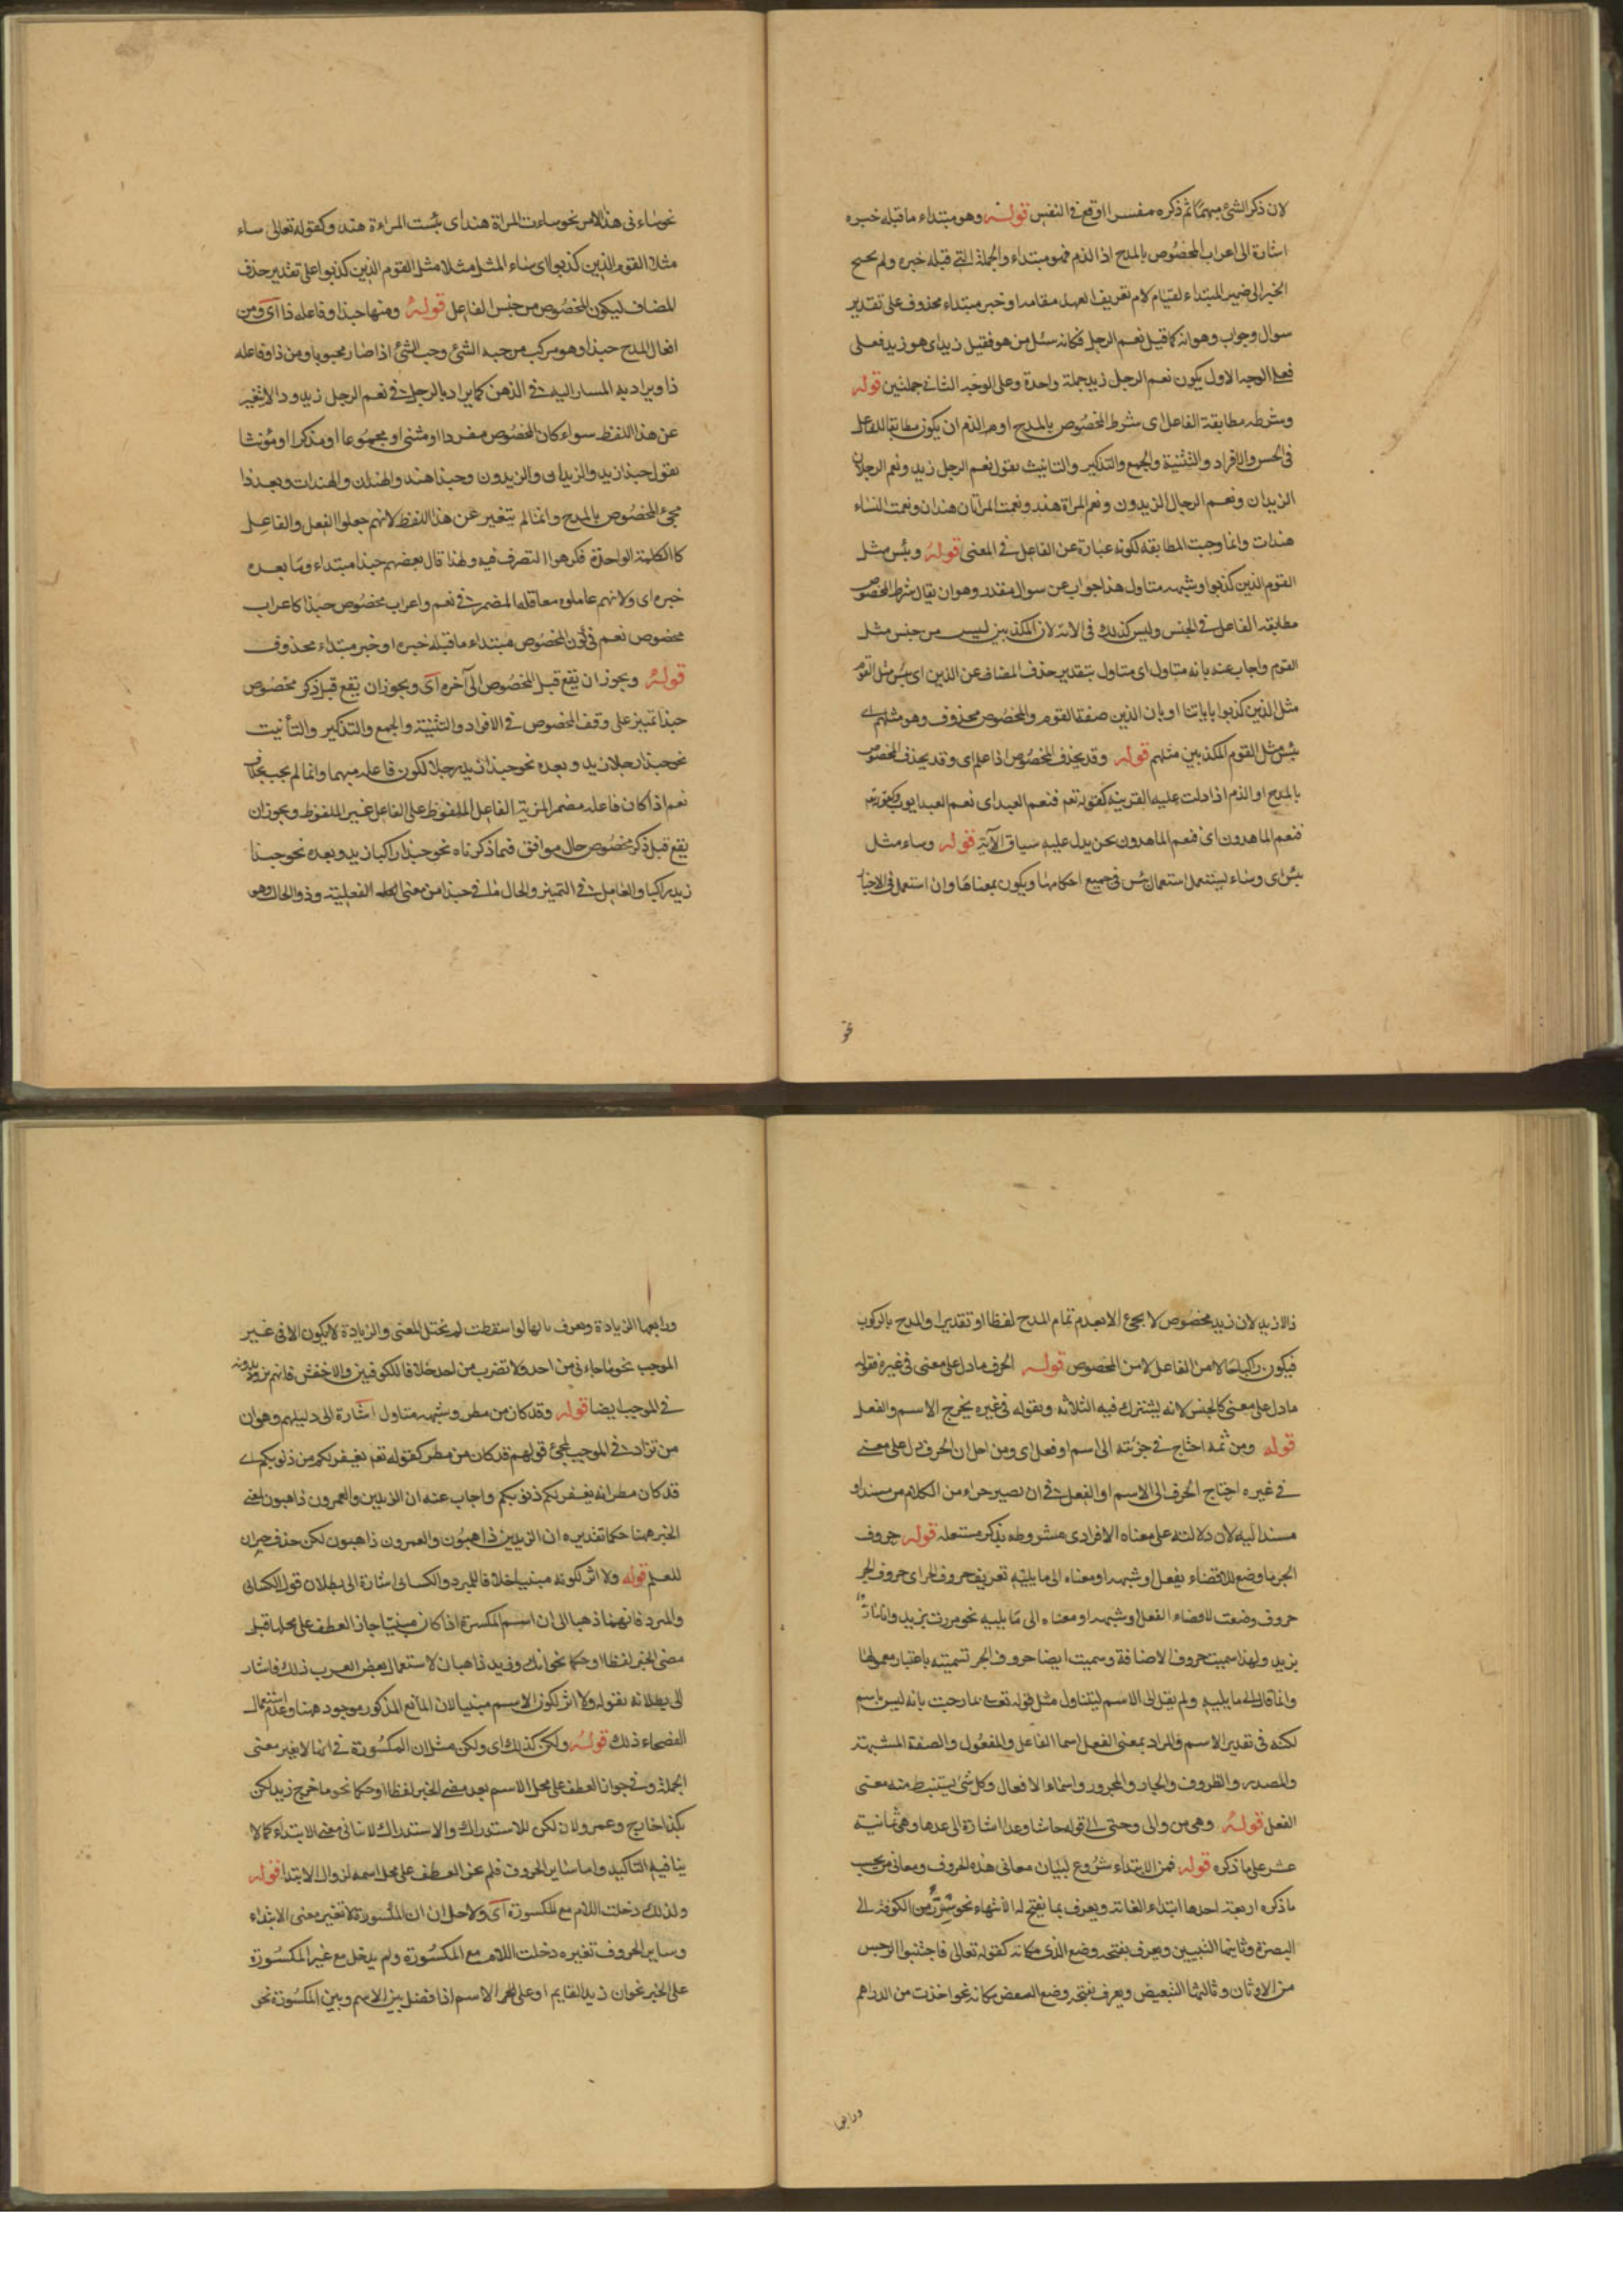 لان ذكر الشئ مبهمًا ثم ذكره مفسرا اوقع فى النفس قوله وهو مبتداء ما قبله خبره
اشارة الى اعراب المخصوص بالمدح اذا الذم فهو مبتداء والجملة التے قبله خبره ولم يحتج
الخبر الى ضمير المبتداء لقيام لام تعريف العهد مقامه او خبر مبتداء محذوف على تقدير
سوال وجواب وهو انه لما قيل نعم الرجل فكانه سئل من هو فقيل زيد اى هو زيد فعلى
فعلى الوجه الاول يكون نعم الرجل زيد جملة واحدة وعلى الوجه الثانى جملتين قوله
وشرطه مطابقة الفاعل اى شرط المخصوص بالمدح او الذم ان يكون مطابقا للفاعل
فى الجنس والافراد والتثنية والجمع والتذكير والتانيث يقول نعم الرجل زيد ونعم الرجلان
الزيدان ونعم الرجال الزيدون ونعم المراة هند ونعمت المرأتان هندان ونعمت النساء
هندات وانما وجبت المطابقه لكونه عبارة عن الفاعل فى المعنى قوله وبئس مثل
القوم الذين كذبوا وشبهه متاول هذا جواب عن سوال مقدر وهو ان يقال شرط المخصوص
مطابقه الفاعل فى الجنس وليس كذلك فى الاية لان المكذبين ليس من جنس مثل
القوم واجاب عنه بانه متاول اى متاول بتقدير حذف المضاف عن الذين اى بئس مثل القوم
مثل الذين كذبوا باياتنا او بان الذين صفة القوم والمخصوص محذوف وهو مثلهم اے
بئس مثل القوم المكذبين مثلهم قوله وقد يحذف المخصوص اذا علم اى وقد يحذف المخصوص
بالمدح او الذم اذا دلت عليه القرينه كقوله تعم فنعم العبد اى نعم العبد ايوب وكقوله تعم
فنعم الماهدون اى فنعم الماهدون نحن يدل عليه سياق الآية قوله وساء مثل
بئس اى وساء يستعمل استعمال بئس فى جميع احكامها ويكون بمعناها وان استعمل فى الاخبار
نحو
نحو ساء فى هذا الامر نحو ساءت المراة هند اى بئست المراءة هند وكقوله تعالى ساء
مثلا القوم الذين كذبوا اى ساء المثل مثلا مثل القوم الذين كذبوا على تقدير حذف
المضاف ليكون المخصوص من جنس الفاعل قوله ومنها حبذا وفاعله ذا آى ومن
افعال المدح حبذا وهو مركب من حب الشئ وحب الشئ اذا صار محبوبا ومن ذا وفاعله
ذا ويراد به المشار اليه فى الذهن كما يراد بالرجل فى نعم الرجل زيد وذا لا تغير
عن هذا اللفظ سواء كان المخصوص مفردا او مثنى او مجموعا او مذكرا او مؤنثا
يقول حبذا زيد والزيدان والزيدون وحبذا هند والهندان والهندات وبعد ذا
مجئ المخصوص بالمدح وانما لم يتغير عن هذا اللفظ لانهم جعلوا الفعل والفاعل
كاالكلمة الواحدة فكرهوا التصرف فيه ولهذا قال بعضهم حبذا مبتداء وما بعده
خبره اى ولانهم عاملوه معاملة المضمر فى نعم واعراب مخصوص حبذا كاعراب
مخصوص نعم فى كون المخصوص مبتداء ما قبله خبره او خبر مبتداء محذوف
قوله ويجوز ان يقع قبل المخصوص الى آخره آى ويجوز ان يقع قبل ذكر مخصوص
حبذا تمييز على وفق المخصوص فى الافراد والتثنية والجمع والتذكير والتأنيث
نحو حبذا رجلا زيد وبعده نحو حبذا زيد رجلا لكون فاعله مبهما وانما لم يجب بخلاف
نعم اذا كان فاعله مضمر المزية الفاعل الملفوظ على الفاعل غير الملفوظ ويجوز ان
يقع قبل ذكر مخصوص حال موافق فيما ذكرناه نحو حبذا راكبا زيد وبعده نحو حبذا
زيد راكبا والعامل فى التمييز والحال ما فى حبذا من معنى الفعلية وذو الحال هو
ذا لا زيد لان زيد مخصوص لا يجئ الا بعد تمام المدح لفظا او تقديرا والمدح بالركوب
فيكون راكبا حالا من الفاعل لا من المخصوص قوله الحرف ما دل على معنى فى غيره فقوله
ما دل على معنى كالجنس لانه يشترك فيه الثلاثه وبقوله فى غيره يخرج الاسم والفعل
قوله ومن ثمه احتاج فى جزئته الى اسم او فعل اى ومن اجل ان الحرف دل على معنے
فى غيره احتاج الحرف الى الاسم او الفعل فى ان يصير جزاء من الكلام من مسند او
مسند اليه لان دلالته على معناه الافرادى مشروطه بذكر متعلقه قوله حروف
الجر ما وضع للافضاء بفعل او شبهه او معناه الى ما يليه تعريف حروف الجر اى حروف الجر
حروف وضعت للافضاء الفعل او شبهه او معناه الى ما يليه نحو مررت بزيد وانا مار
بزيد ولهذا سميت حروف الاضافة وسميت ايضا حروف الجر تسميته باعتبار معمولها
وانما قال الى ما يليه ولم يقل الى الاسم ليتناول مثل قوله تعالى بما رحبت بانه ليس باسم
لكنه فى تقدير الاسم والمراد بمعنى الفعل اسما الفاعل والمفعول والصفة المشبهة
والمصدر والظروف والجار والمجرور واسماء الافعال وكل شئ يستنبط منه معنى
الفعل قوله وهى من والى وحتى الى قوله حاشا وعدا اشارة الى عدها وهى ثمانية
عشر على ما ذكره قوله فمن للابتداء شروع لبيان معانى هذه الحروف ومعانى من بحسب
ما ذكره اربعة احدها ابتداء الغاية ويعرف بما يفتح له الانتهاء نحو سرت من الكوفة الى
البصرة وثانيها التبيين ويعرف بفتحه وضع الذى مكانه كقوله تعالى فاجتنبوا الرجس
من الاوثان وثالثها التبعيض ويعرف بفتحه وضع البعض مكانه نحو اخذت من الدراهم
ورابعها
ورابعها الزيادة ويعرف بانها لو اسقطت لم يختل المعنى والزيادة لا يكون الا فى غير
الموجب نحو ما جاءنى من احد ولا تضرب من احد خلافا للكوفيين والاخفش فانهم يزيدونه
فى الموجب ايضا قوله وقد كان من مطر وشبهه متاول اشارة الى دليلهم وهو ان
من تزاد فى الموجب لمجئ قولهم قد كان من مطر كقوله تعم يغفر لكم من ذنوبكم اے
قد كان مطر انه يغفر لكم ذنوبكم واجاب عنه ان الزيدين والعمرون ذاهبون لمضے
الخبر ههنا حكما تقديره ان الزيدين ذاهبون والعمرون ذاهبون لكن حذف خبر ان
للعلم قوله ولا اثر لكونه مبنيا خلافا للمبرد والكسائى اشارة الى بطلان قول الكسائى
والمبرد فانهما ذهبا الى ان اسم المكسرة اذا كان مبنيّا جاز العطف على محلها قبل
مضى الخبر لفظا او حكما نحو انك وزيد ذاهبان لاستعمال بعض العرب ذلك فاشار
الى بطلانه بقوله ولا اثر لكون الاسم مبنيا لان المانع المذكور موجود ههنا وعدم استعمال
الفصحاء ذلك قوله ولكن كذلك اى ولكن مثل ان المكسورة فى انها لا يغير معنى
الجملة وفى جواز العطف على محل الاسم بعد مضے الخبر لفظا او حكما نحو ما خرج زيد لكن
بكرا خارج وعمرو لان لكن للاستدراك والاستدراك لا ينافى معنى الابتداء كما لا
ينافيه التاكيد واما ساير الحروف فلم يجز العطف على محل اسمه لزوال الابتدا قوله
ولذلك دخلت اللام مع المكسورة آى ولاجل ان ان المكسورة لا تغير معنى الابتداء
وساير الحروف تغيره دخلت اللام مع المكسورة ولم يدخل مع غير المكسورة
على الخبر نحو ان زيدا لقايم او على الاسم اذا فصل بين الاسم وبين المكسورة نحو